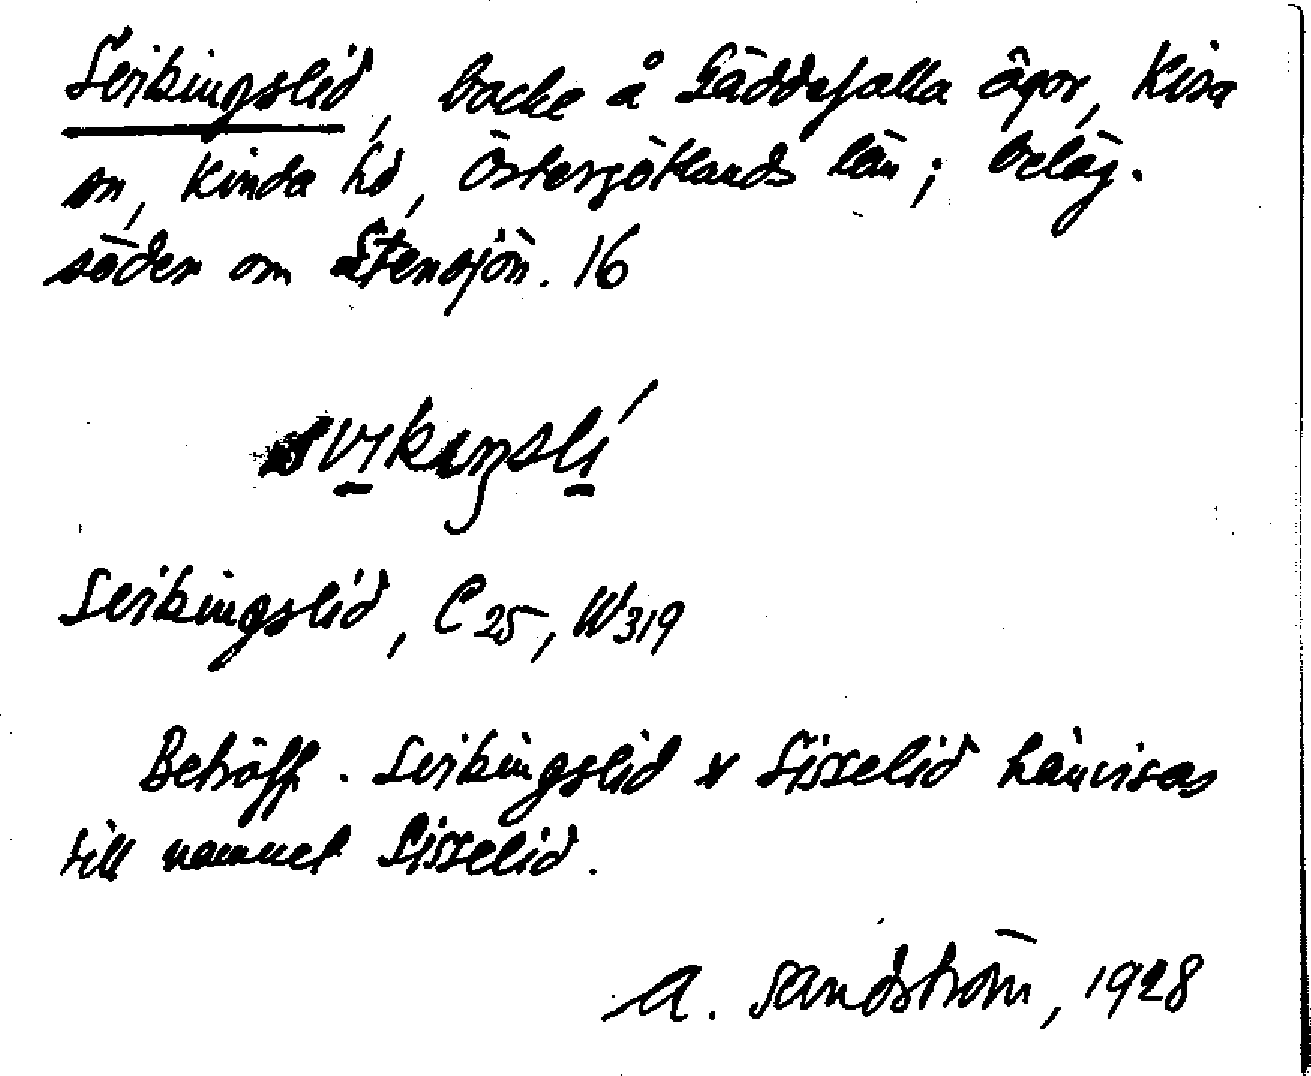 Svikingslid, backe å Gäddefalla ägor, Kisa
sn, Kinda hd, Östergötlands län; beläg.
söder om Stensjön. 16
svikiŋslí
Svikingslid, C25, W319
Beträff. Svikingslid x Sisselid hänvisas
till namnet Sisselid.
A. Sandström, 1928